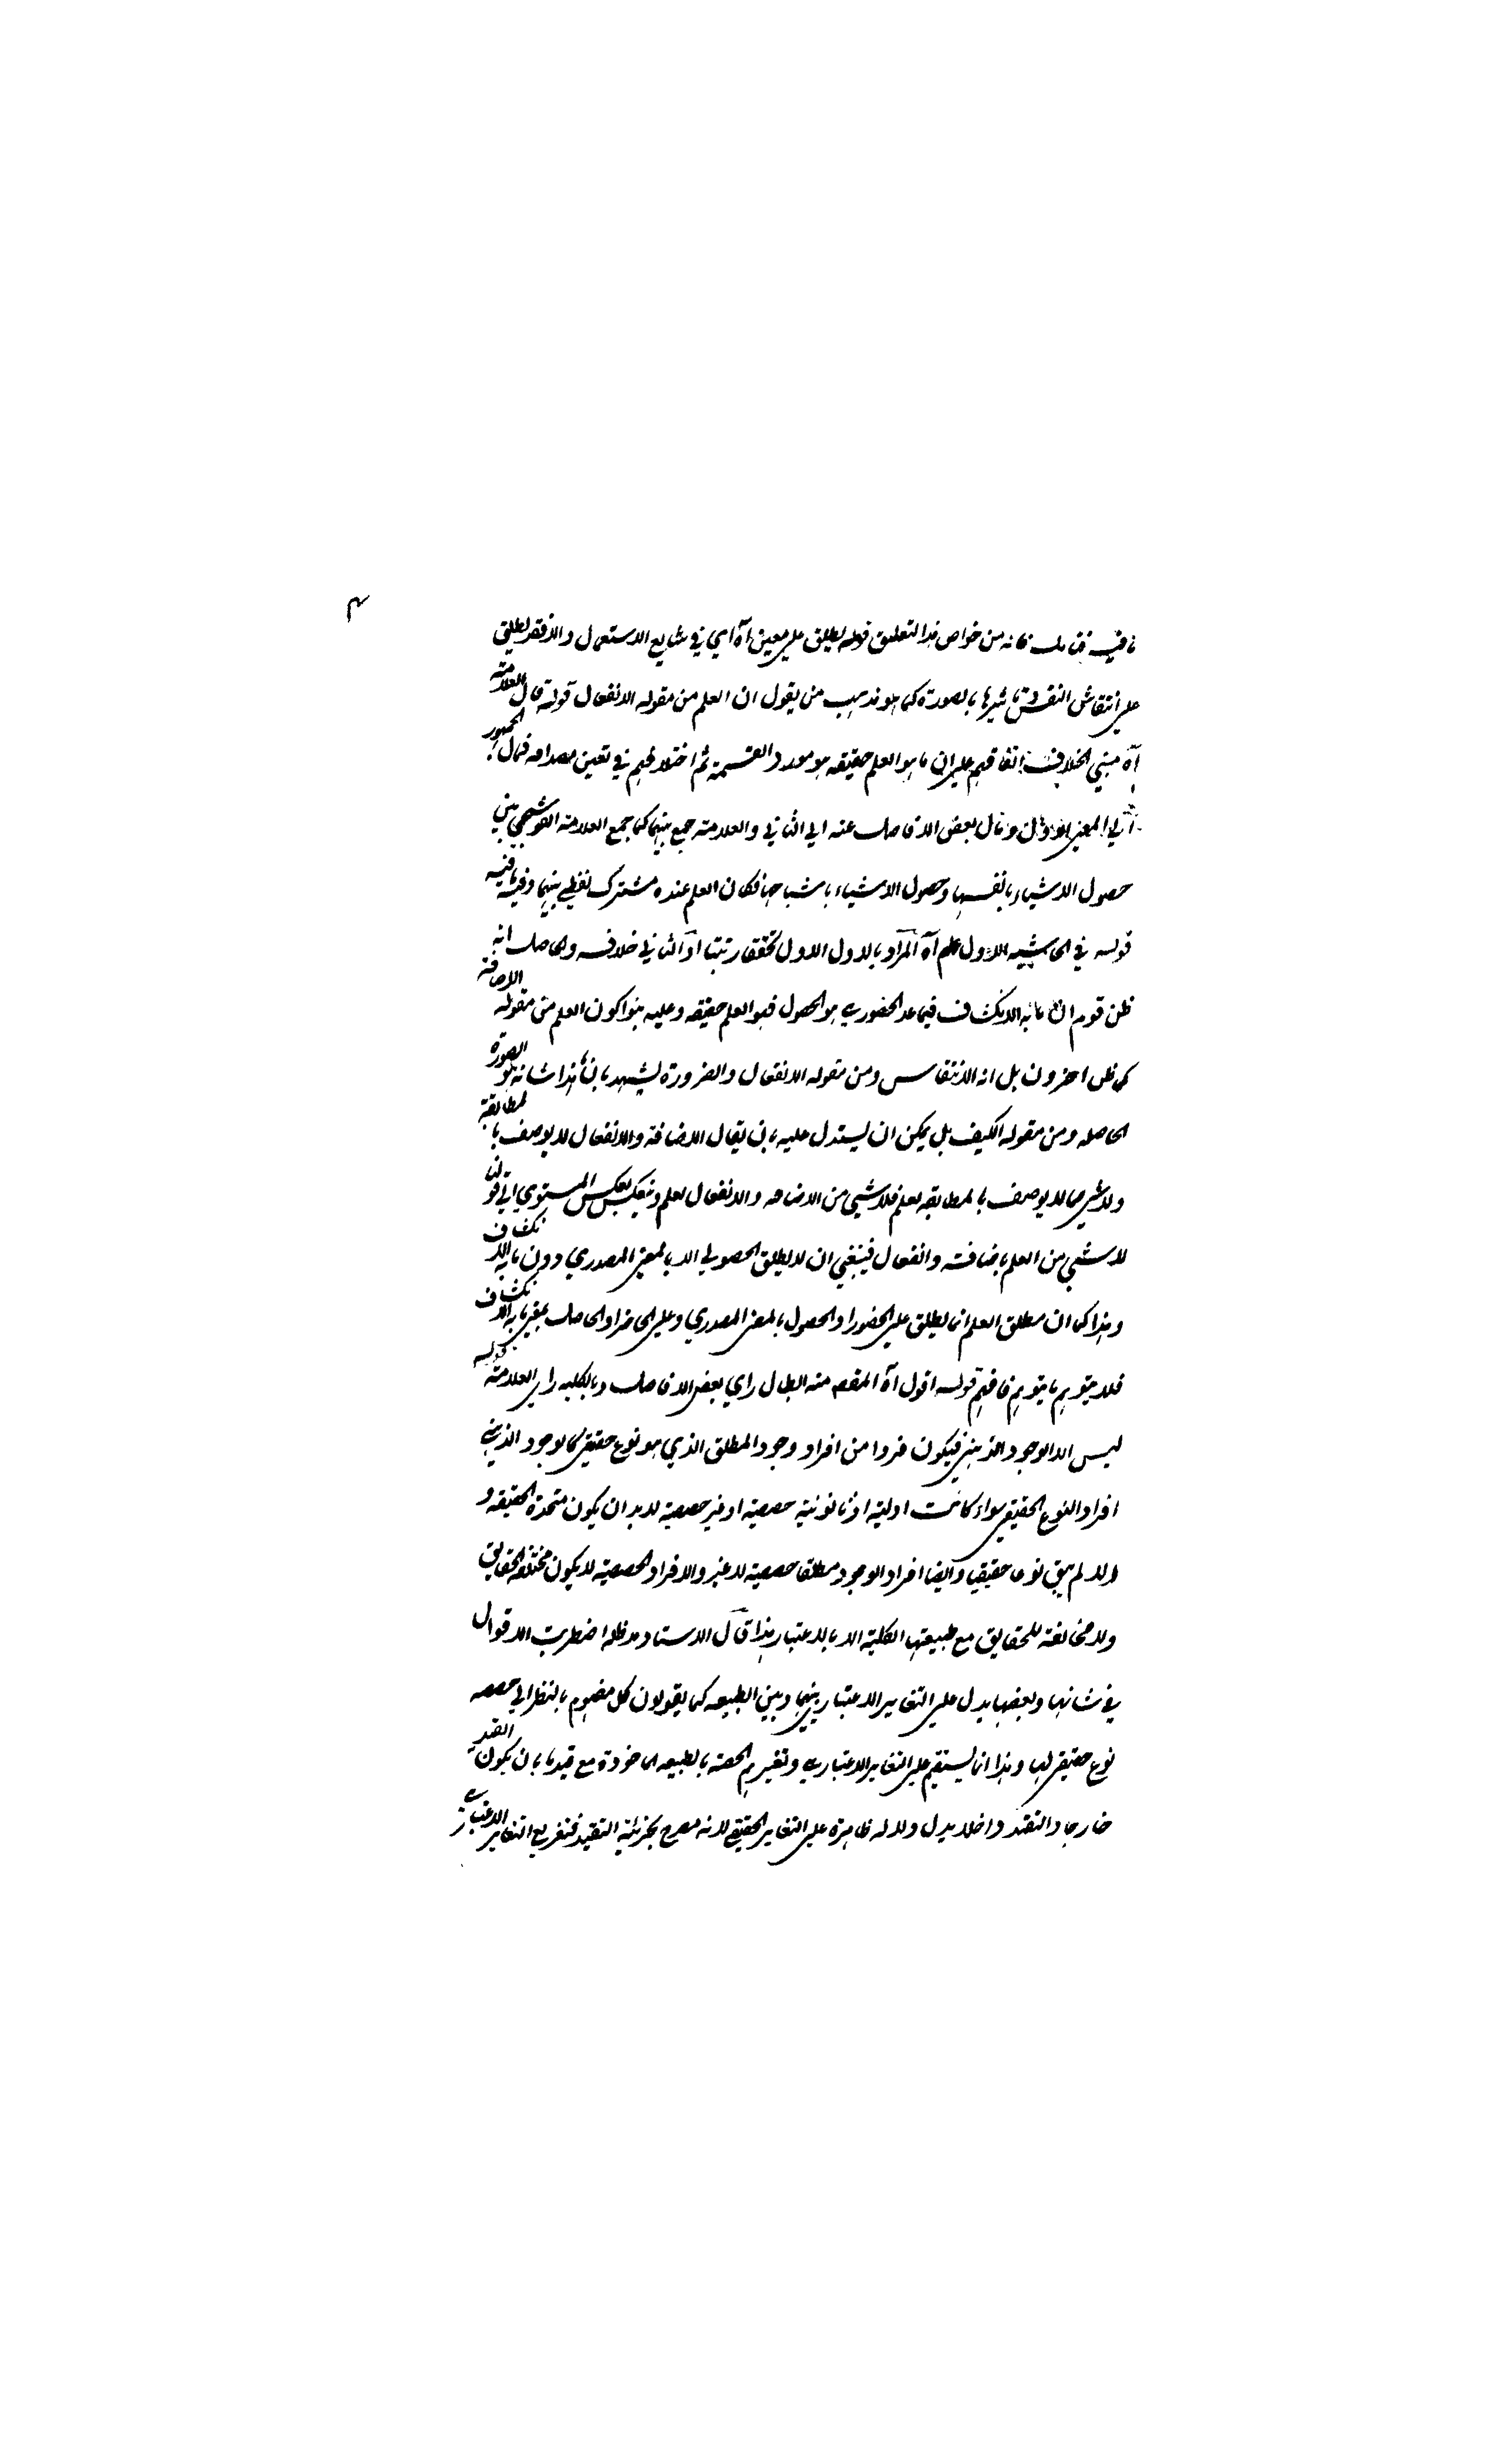 ٣
ما فيه فتأمل فانه من خواص هذا التعليق قوله يطلق على معنيين آه اي في شايع الاستعمال والا فقد يطلق
على انتقاش النفس وتاثيرها بالصورة كما هو مذهب من يقول ان العلم من مقوله الانفعال قوله قال العلامة
آه مبني الخلاف اتفاقهم على ان ما هو العلم حقيقه هو مورد القسمة ثم اختلافهم في تعين مصداقه فمال الجمهور
الي المعنى الاول ومال بعض الافاضل عنه الي الثاني والعلامة جمع بينهما كما جمع العلامة القوشجي بين
حصول الاشياء بانفسها وحصول الاشياء باشباحها فكان العلم عنده مشترك لفظي بينهما وفيه ما فيه
قوله في الحاشيه الاول علم آه المراد بالاول الاول تحققا ورتبتا او الثاني خلافه والحاصل انه
ظن قوم ان ما به الانكشاف فيما عد الحضوري هو الحصول فهو العلم حقيقه وعليه بنوا كون العلم من مقوله الاضافة
كما ظن اخرون بل انه الانتقاش ومن مقوله الانفعال والضرورة يشهد بان ما هذا شانه هو الصورة
الحاصله ومن مقوله الكيف بل يمكن ان يستدل عليه بان يقال الاضافة والانفعال لا يوصف بالمطابقة
ولا شي مما لا يوصف بالمطابقه بعلم فلا شي من الاضافه والانفعال بعلم وينعكس بعكس المستوي الي قولنا
لا شي من العلم باضافة وانفعال فينبغي ان لا يطلق الحصولي الا بالمعنى المصدري دون ما به الانكشاف
وهذا كما ان مطلق العلم انما يطلق على الحضور او الحصول بالمعنى المصدري وعلى الحاضر او الحاصل بمعنى ما به الانكشاف
فلا يتوهم ما يتوهم فافهم قوله اقول آه المقصد منه ابطال راي بعض الافاضل وبالكليه راي العلامة قوله
ليس الا الوجود الذهني فيكون فردا من افراد وجود المطلق الذي هو نوع حقيقي كالوجود الذهني
افراد النوع الحقيقي سواء كانت اولية او ثانونية حصصية او غير حصصية لا بد ان يكون متحدة الحقيقه و
الا لم يبق نوعا حقيقيا وايضا افراد الوجود مطلقا حصصية لا غير والافراد الحصصية لا يكون مختلفة الحقايق
ولا مخالفة للحقايق مع طبيعتها الكلية الا بالاعتبار هذا قال الاستاد مد ظله اضطربت الاقوال
في شانها وبعضها يدل على التغاير الاعتباري بينها وبين الطبيعه كما يقولون كل مفهوم بالنظر الي حصصه
نوع حقيقي لها وهذا انما يستقيم على التغاير الاعتباري وتفسيرهم الحصة بالطبيعه الماخوذة مع قيد ما بان يكون القيد
خارجا والتقيد داخلا يدل دلاله ظاهرة على التغاير الحقيقي لانه مصرح بجزئية التقييد فتفريع التغاير الاعتباري